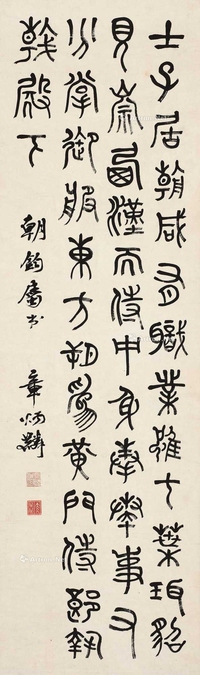 士子居朝咸有職業雖七葉珥貂
見崇西漢而侍中身奉奏事又
分掌御服東方朔為黃門侍郎執
戟殿下
朝鈞屬書 章炳麟